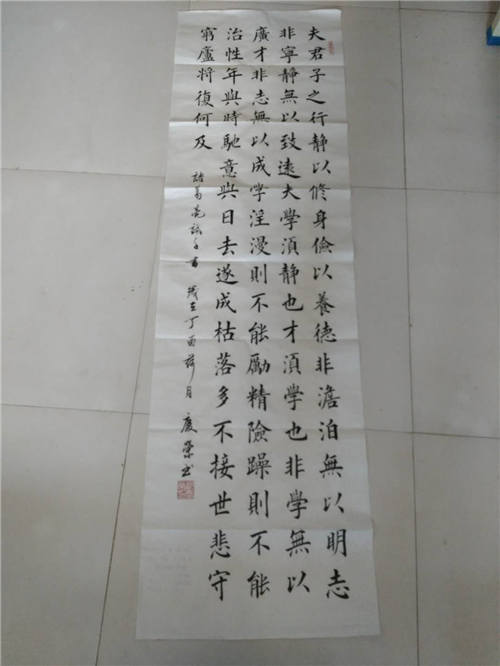 夫君子之行静以修身儉以養德非澹泊無以明志
非寧静無以致遠夫學湏静也才湏學也非學無以
廣才非志無以成学淫漫則不能勵精險躁則不能
治性年與時馳意與日去遂成枯落多不接世悲守
窮廬將復何及
諸葛亮誡子書 歲在丁酉 月 慶榮书